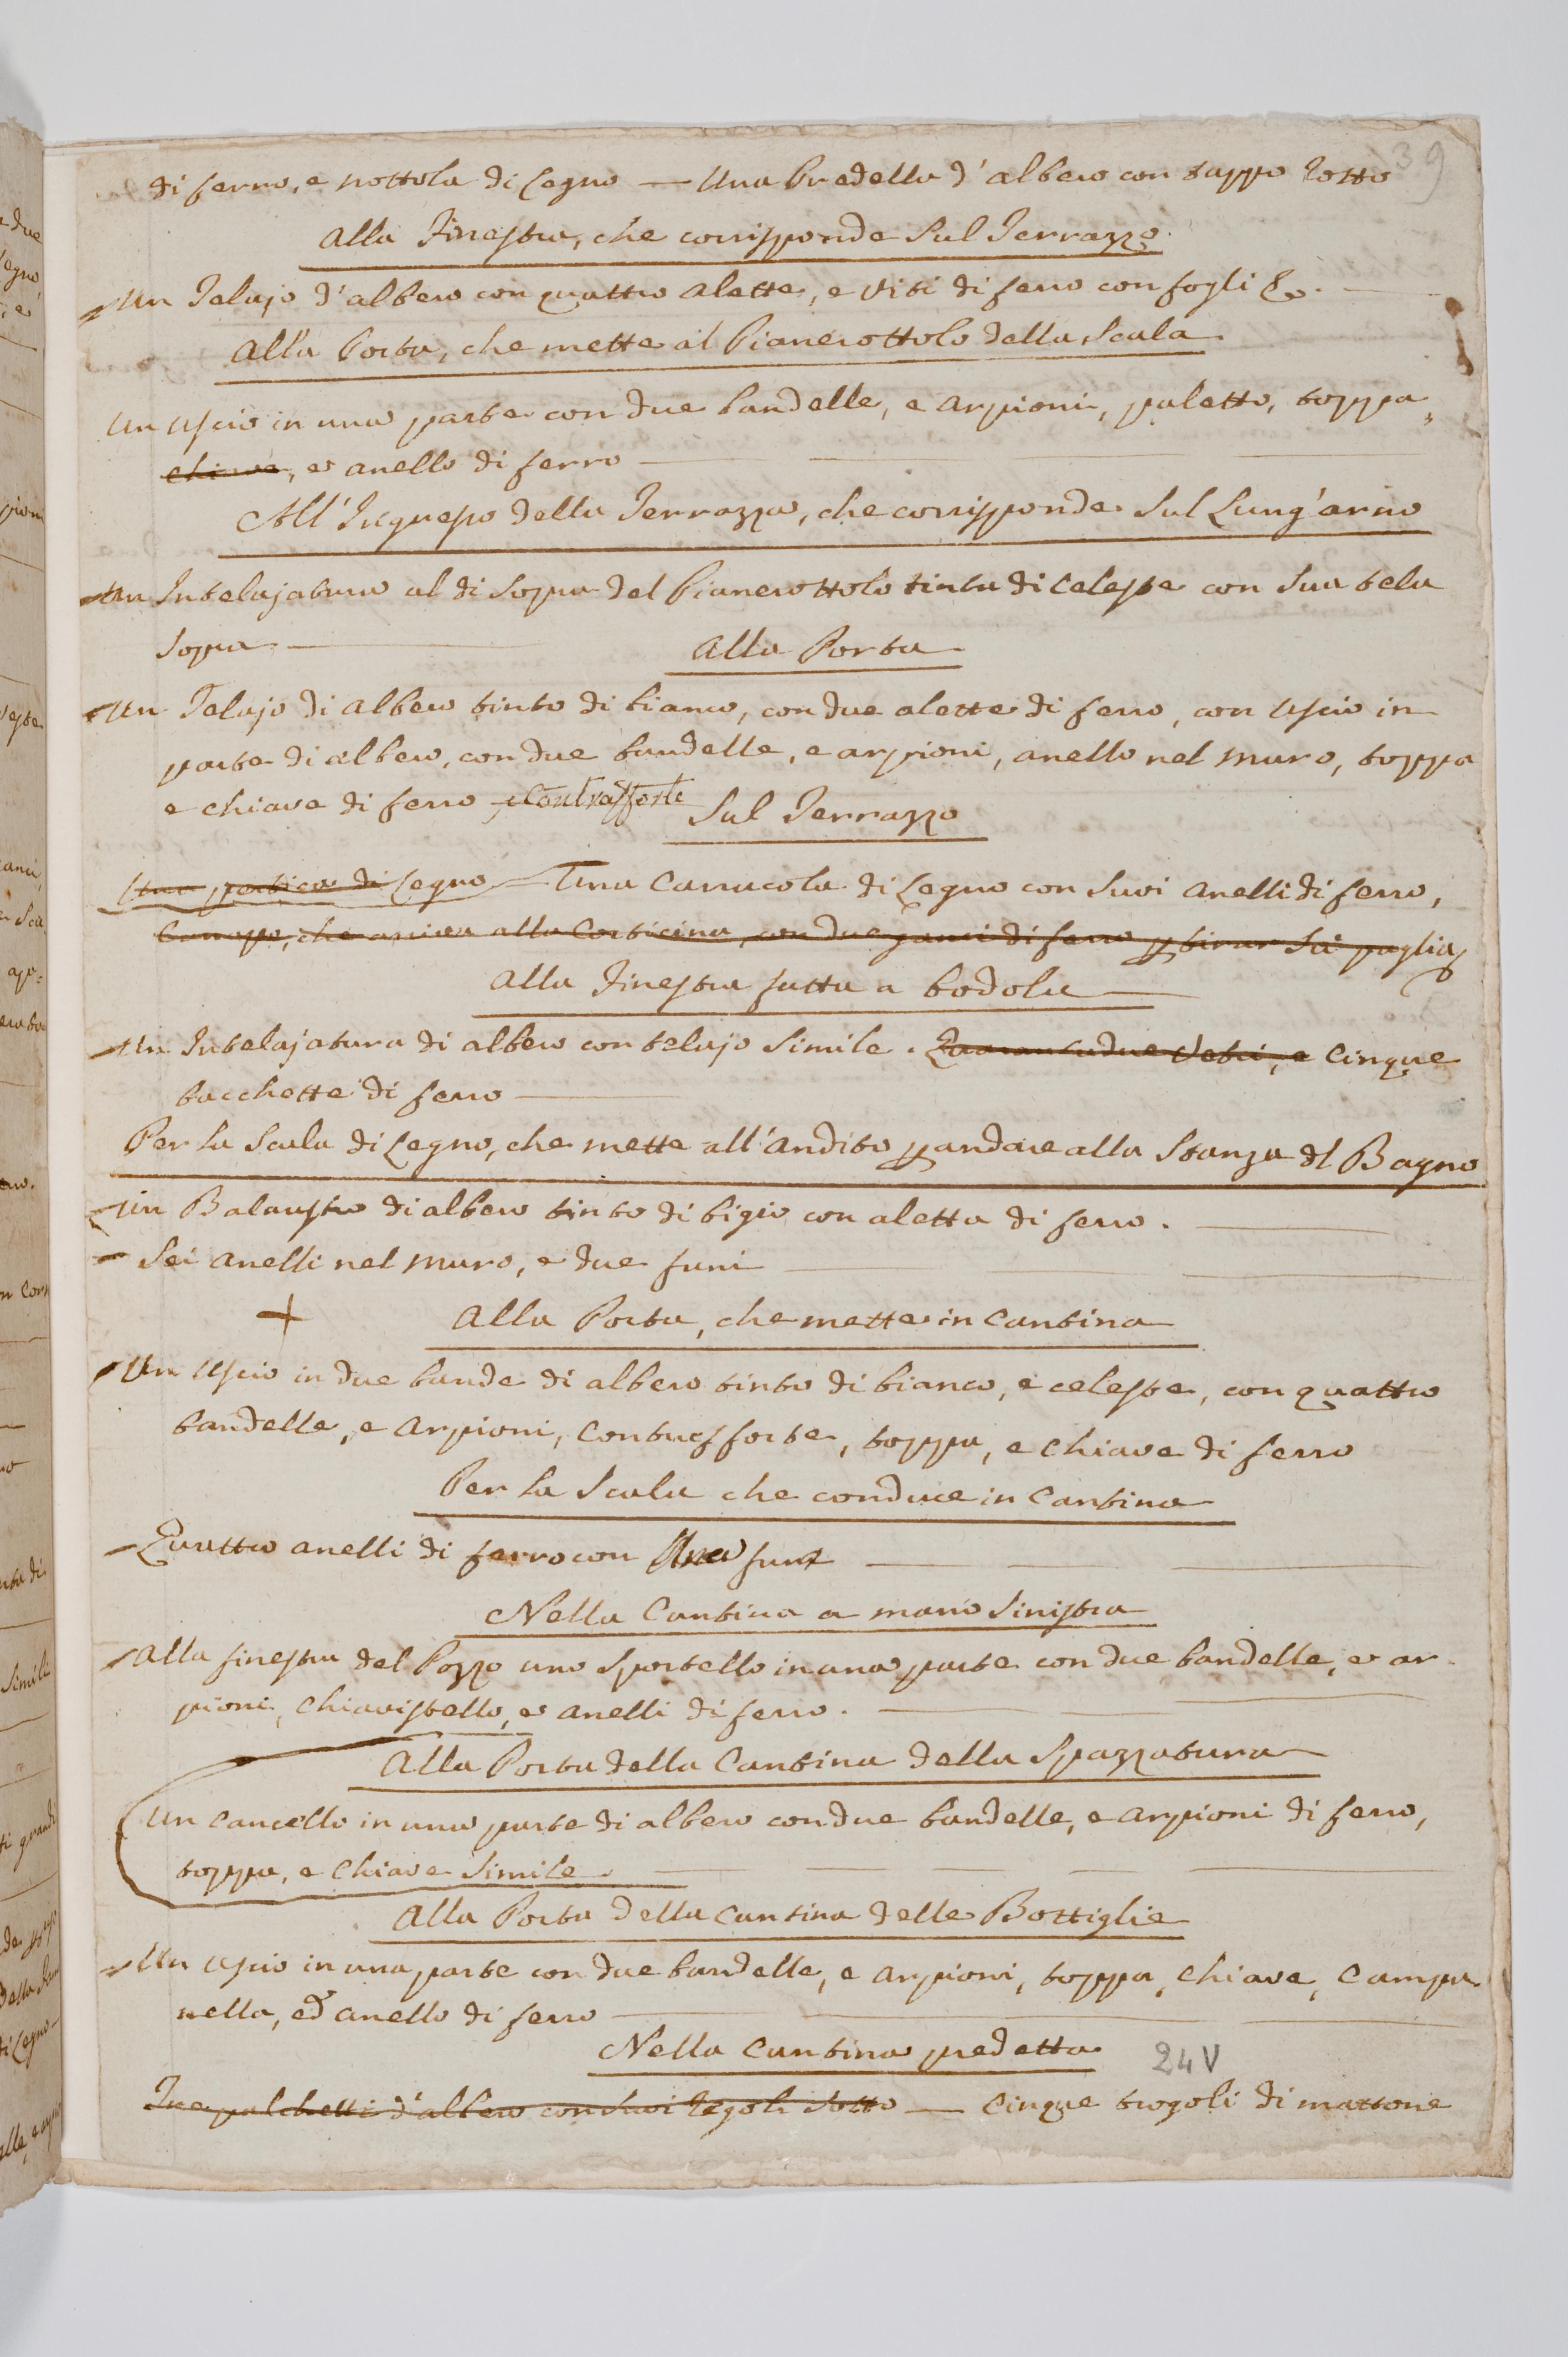 39
di ferro, e nottola di legno — Una Predella d'albero con tappo rotto
Alla Finestra, che corrisponde sul Terrazzo
Un Telajo d'albero con quattro alette, e viti di ferro con fogli &c.
Alla Porta, che mette al Pianerottolo della Scala
Un Uscio in una parte con due bandelle, e arpioni, paletto, toppa,
chiave, e anello di ferro
All'Ingresso della Terrazza, che corrisponde sul Lung'arno
Un Intelajatura al di sopra del Pianerottolo tinta di celeste con sua tela
sopra
Alla Porta
Un Telajo di albero tinto di bianco, con due alette di ferro, con Uscio in
parte di albero, con due bandelle, e arpioni, anello nel muro, toppa
e chiave di ferro, e Contrafforte
Sul Terrazzo
Una pertica di legno — Una Carrucola di legno con suoi anelli di ferro,
Canapo, che arriva alla Corticina, con due ganci di ferro p tirar su paglia
Alla Finestra fatta a bodola
Un Intelajatura di albero con telajo simile. Quarantadue Vetri, e Cinque
bacchette di ferro
Per la Scala di legno, che mette all'andito p andare alla Stanza del Bagno
Un Balaustro di albero tinto di bigio con aletta di ferro.
Sei anelli nel muro, e due funi
+
Alla Porta, che mette in Cantina
Un Uscio in due bande di albero tinto di bianco, e celeste, con quattro
bandelle, e arpioni, Contrafforte, toppa, e chiave di ferro
Per la Scala che conduce in Cantina
Quattro anelli di ferro con Una fune
Nella Cantina a mano sinistra
Alla finestra del Pozzo uno sportello in una parte con due bandelle, e ar-
pioni, chiavistello, e anelli di ferro.
Alla Porta della Cantina della Spazzatura
Un Cancello in una parte di albero con due bandelle, e arpioni di ferro,
toppa, e chiave simile.
Alla Porta della Cantina delle Bottiglie
Un Uscio in una parte con due bandelle, e arpioni, toppa, chiave, campa-
nella, ed anello di ferro
Nella Cantina predetta
24V
Tre palchetti d'albero con suoi regoli sotto — Cinque trogoli di mattone